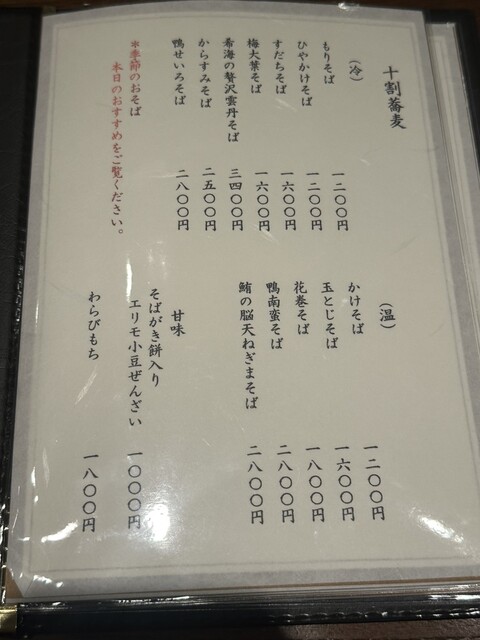 十割蕎麦
（冷）
もりそば 一二〇〇円
ひやかけそば 一二〇〇円
すだちそば 一六〇〇円
梅大葉そば 一六〇〇円
希海の贅沢雲丹そば 三四〇〇円
からすみそば 二五〇〇円
鴨せいろそば 二八〇〇円
*季節のおそば
本日のおすすめをご覧ください。
（温）
かけそば 一二〇〇円
玉とじそば 一六〇〇円
花巻そば 一八〇〇円
鴨南蛮そば 二八〇〇円
鮪の脳天ねぎまそば 二八〇〇円
甘味
そばがき餅入り
エリモ小豆ぜんざい 一〇〇〇円
わらびもち 一八〇〇円